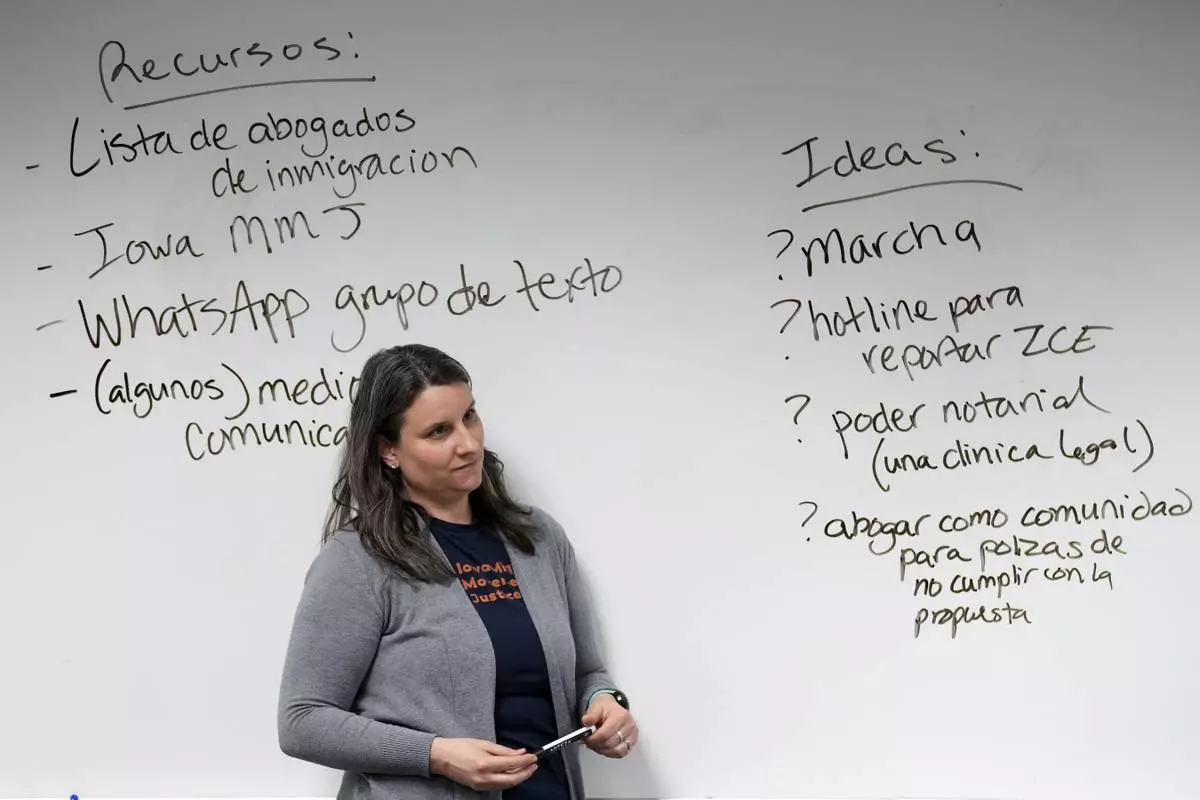 Recursos:
- Lista de abogados
de inmigracion
- Iowa MMJ
- WhatsApp grupo de texto
- (algunos) medio
comunica
Ideas:
? Marcha
? hotline para
reportar ICE
? poder notarial
(una clinica legal)
? abogar como comunidad
para polizas de
no cumplir con la
propuesta
Justice